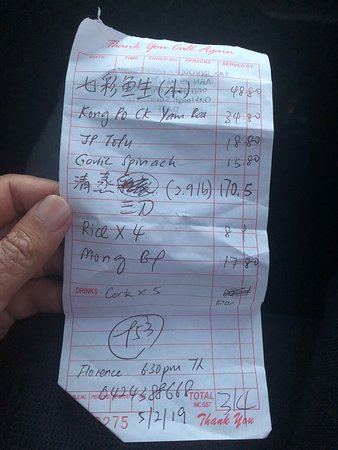 Thank You Call Again
DATE TIME TABLE No PERSONS SERVED BY
七彩鱼生(小) 48.80
Kong Po Ck Yam 34.80
JP Tofu 18.80
Garlic Spinach 15.80
清蒸 (2.9lb) 170.5
三刀
Rice X 4 8
Mong Bf 17.80
DRINKS Cork x 5
Florence 6:30pm
0424388668
PERSONS TOTAL
INC.GST 314
275 5/2/19 Thank You